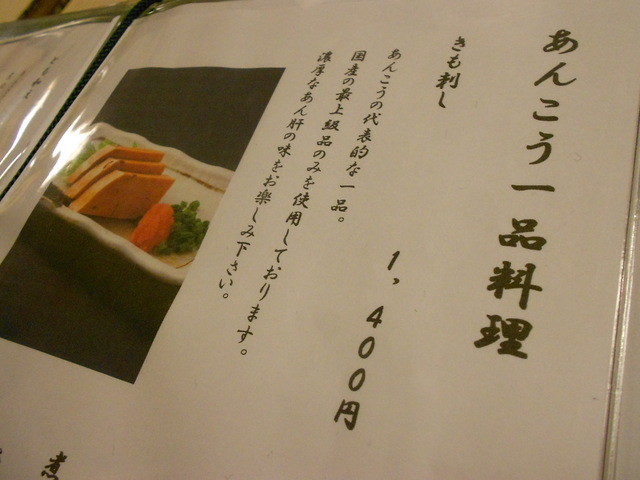 あんこう一品料理
きも刺し
1,400円
あんこうの代表的な一品。
国産の最上級品のみを使用しております。
濃厚なあん肝の味をお楽しみ下さい。
煮